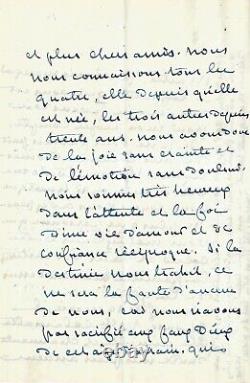 et plus chers amis. nous
nous connaissons tous les
quatre, elle depuis qu'elle
est née, les trois autres depuis
trente ans. nous avons donc
de la joie sans crainte et
de l'émotion sans douleur.
nous sommes très heureux
dans l'attente et la foi
d'une vie d'amour et de
confiance réciproque. Si la
destinée nous trahit, ce
ne sera la faute d'aucun
de nous, car nous n'avons
pas sacrifié aux faux Dieux
de cet âge d'airain, qui
ebay